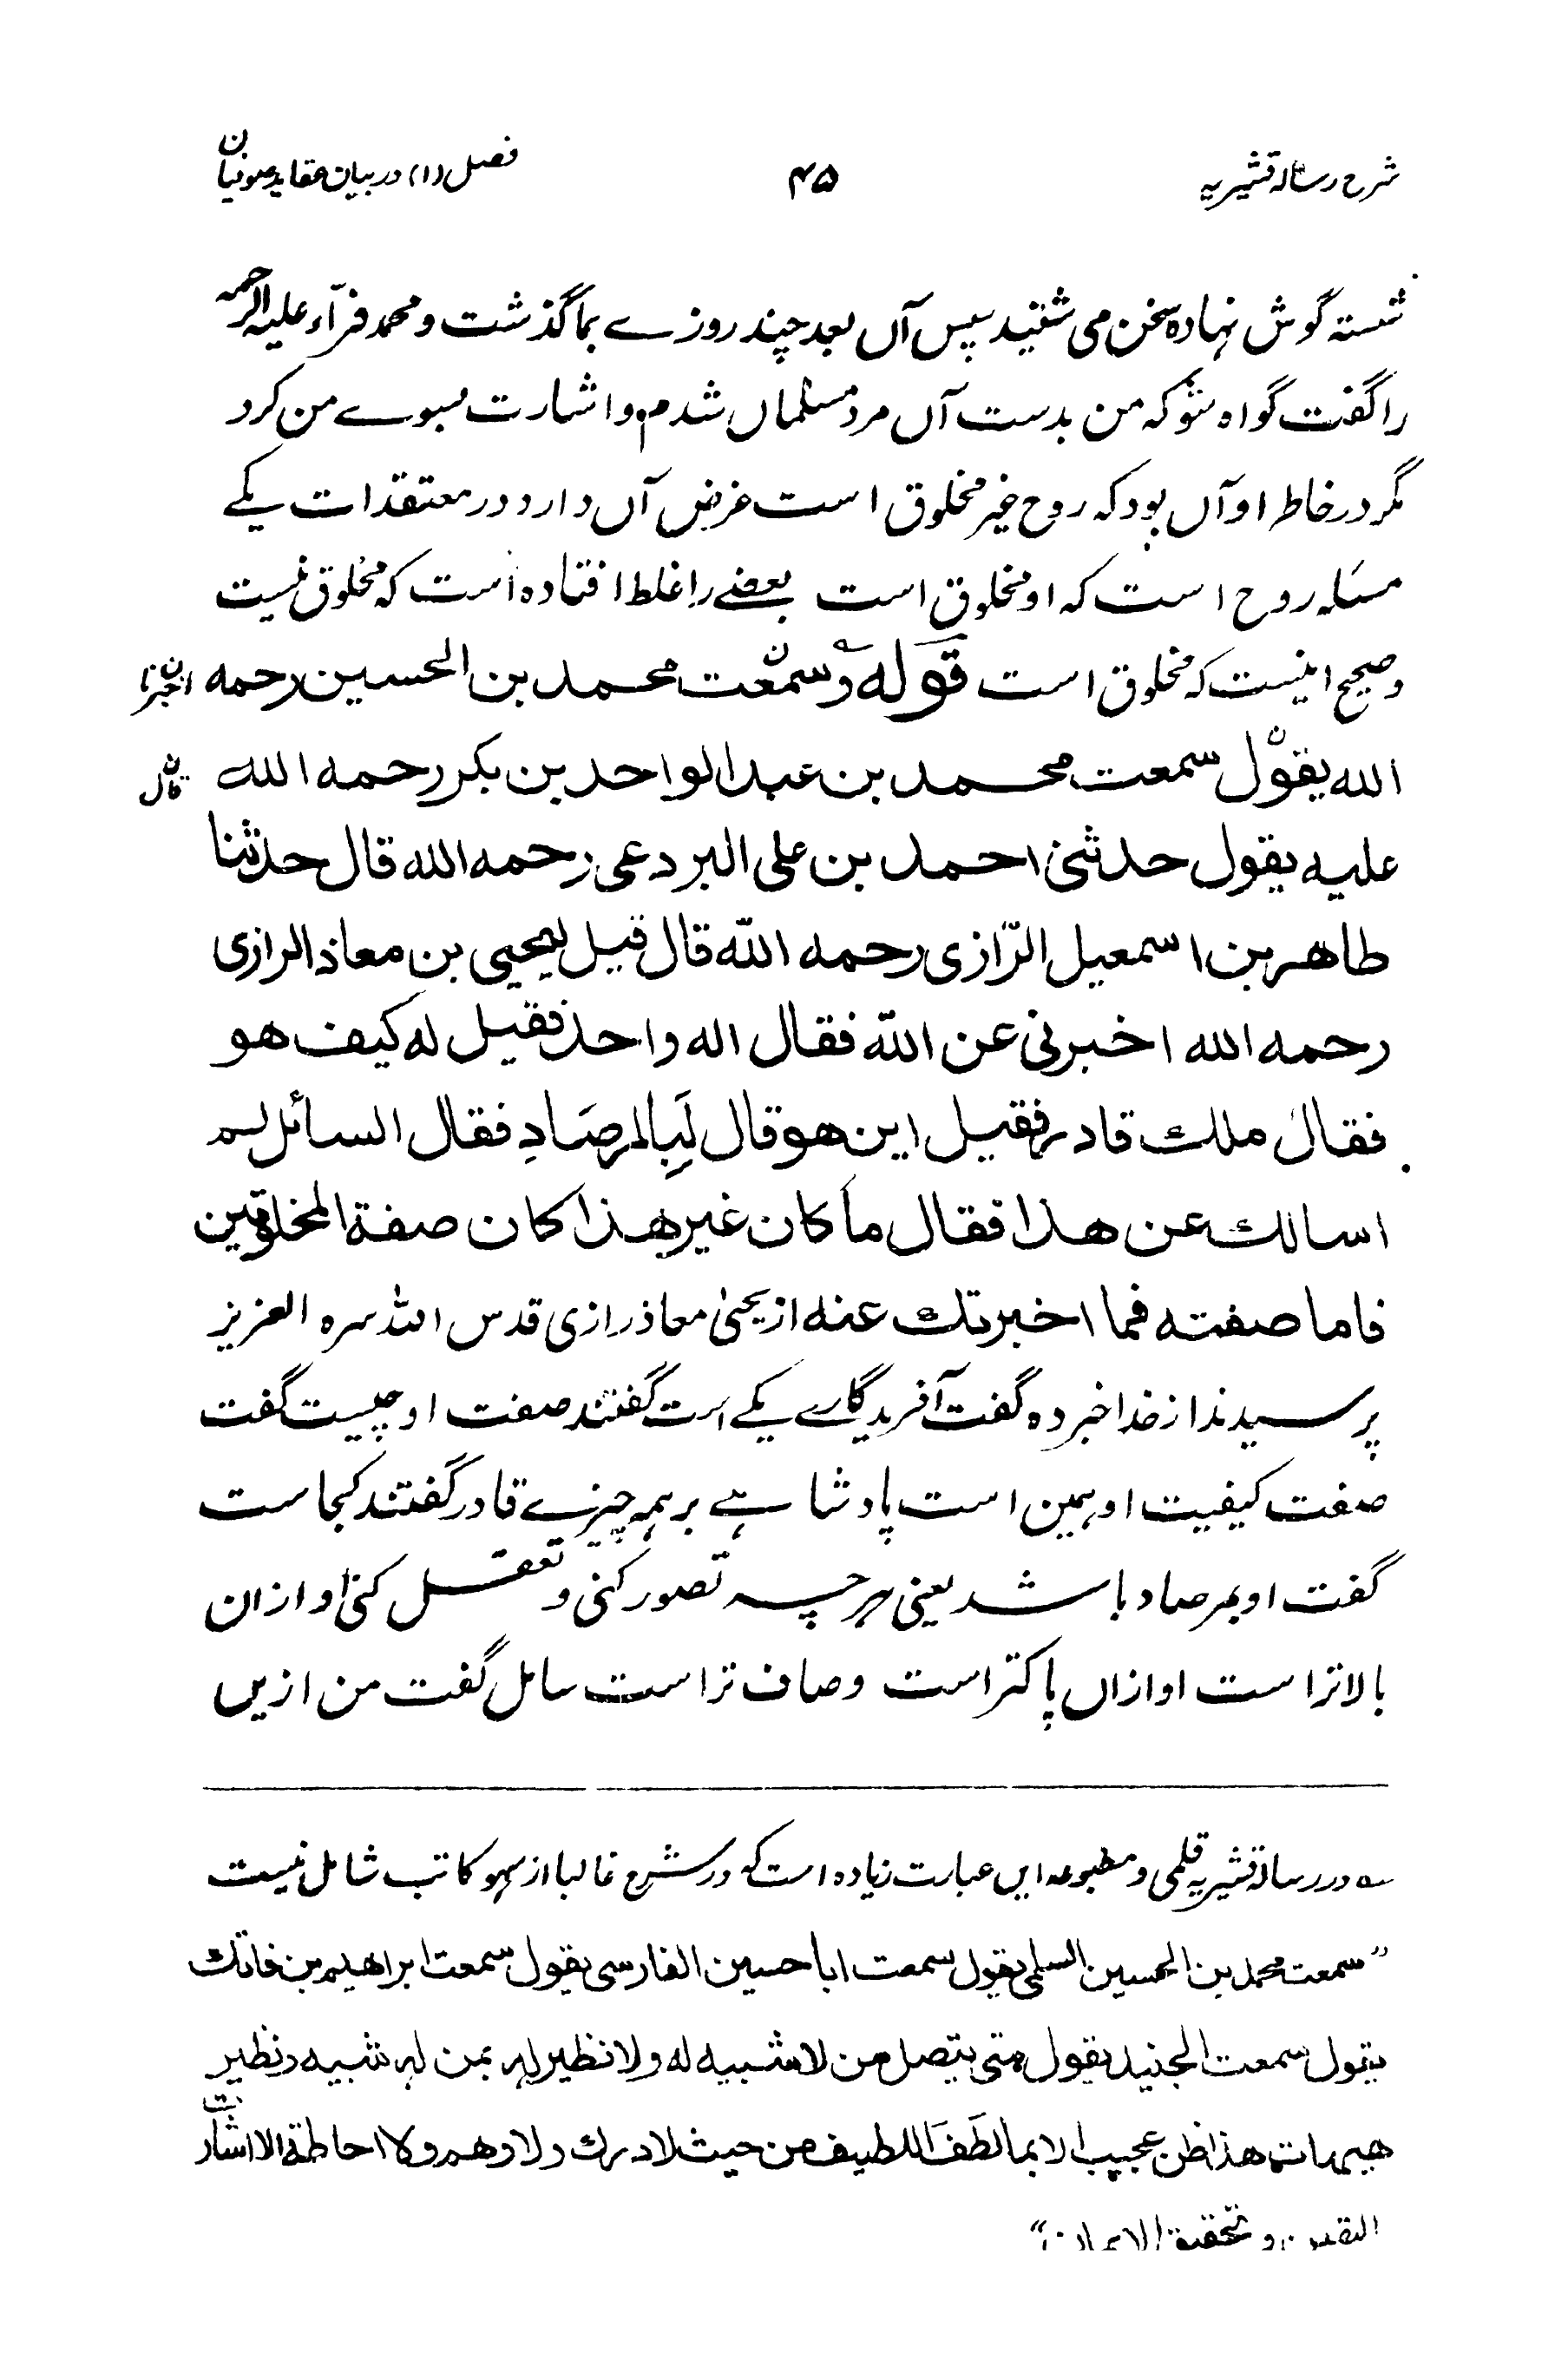 شرح رسالہ قشیریہ ۴۵ فصل (۱) در بیان عقاید صوفیان
شستہ گوش نہادہ سخن می شنید سپس آں بعد چند روزے بما گذشت و محمد فرّاء علیہ الرحمہ
را گفت گواہ شو کہ من بدست آں مرد مسلماں شدم و اشارت بسوے من کرد
مگر در خاطر او آں بود کہ روح غیر مخلوق است غرض آں دارد در معتقدات یکے
مسئلہ روح است کہ او مخلوق است بعضے را غلط افتادہ است کہ مخلوق نیست
و صحیح اینست کہ مخلوق است قوله و سمعت محمد بن الحسین رحمه اخبرنا ن
الله یقول سمعت محمد بن عبد الواحد بن بکر رحمه الله قال ن
علیه یقول حدثنی احمد بن علی البردعی رحمه الله قال حدثنا
طاهر بن اسمعیل الرّازی رحمه اللّه قال قیل لیحیی بن معاذ الرازی
رحمه الله اخبرنی عن اللّه فقال اله واحد فقیل له کیف هو
فقال ملك قادر فقیل این هو قال لَبِالمرصَادِ فقال السائل لم
اسالك عن هذا فقال ما کان غیر هذا کان صفة المخلوقین
فاما صفته فما اخبرتك عنه از یحییٰ معاذ رازی قدس اللہ سرہ العزیز
پرسیدند از خدا خبر دہ گفت آفریدگارے یکے است گفتند صفت او چیست گفت
صفت کیفیت او ہمین است پادشاہے بر ہمہ چیزے قادر گفتند کجاست
گفت او بمرصاد باشد یعنی ہرچہ تصور کنی و تعقل کنی او ازان
بالاتر است او ازاں پاکتر است و صاف تر است سائل گفت من ازیں
ے در رسالہ قشیریہ قلمی و مطبوعہ ایں عبارت زیادہ است کہ در شرح غالبا از سہو کاتب شامل نیست
”سمعت محمد بن الحسین السلمی یقول سمعت ابا حسین الفارسی یقول سمعت ابراهیم بن فاتك
یقول سمعت الجنید یقول متی یتصل من لا شبیه له ولا نظیر له بمن له شبیه و نظیر
هیهات هذا ظن عجیب الا بما لَطَفَ اللطیف من حیث لا درك ولا وهم ولا احاطة الا اشارت
الیقین و تحقیق الایمان“